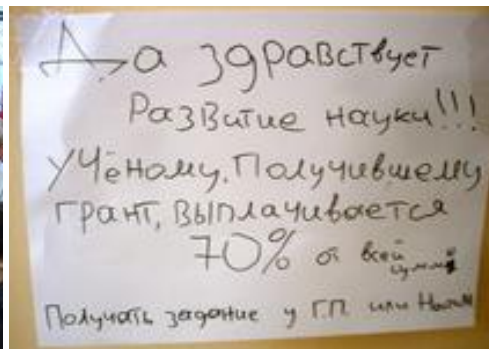 Да здравствует
Развитие науки!!!
Учёному, Получившему
грант, выплачивается
70% от всей
суммы
Получать задание у Г.П. или